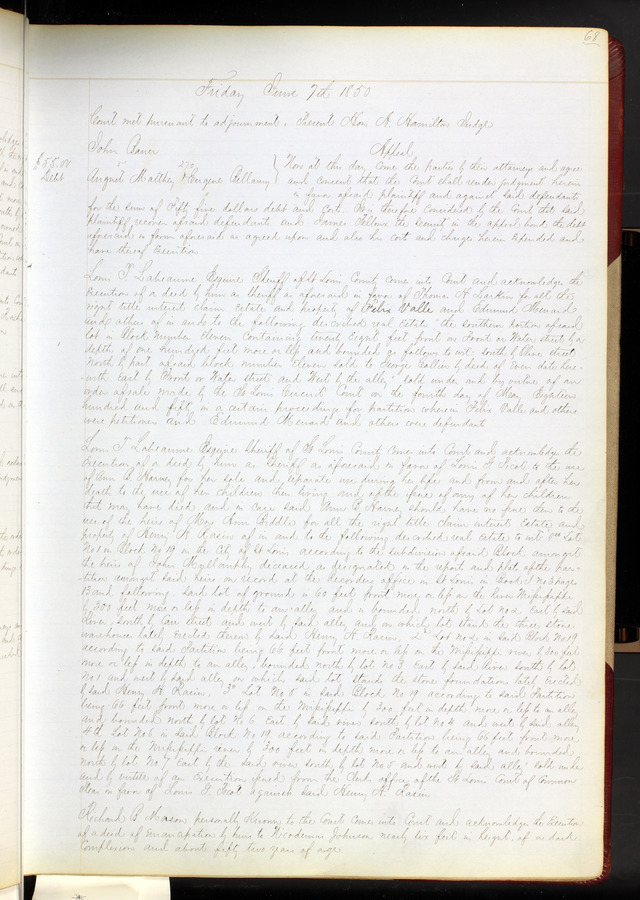 68
Friday June 7th 1850
Court met pursuant to adjournment. Present Hon A. Hamilton Judge
John Bauer
Appeal
$55.00
Debt
August Malthey & Eugene Bellamy
Now at this day come the parties by their attorneys and agree
and consent that the Court shall render judgment herein
in favor of said plaintiff and against said defendants
for the sum of Fifty five dollars debt and costs. It is therefore considered by the Court that said
plaintiff recover of said defendants and the security in the appeal bond the debt
aforesaid in form aforesaid as agreed upon and also his costs and charges herein expended and
have thereof Execution
Louis T Labeaume Esquire Sheriff of St Louis County comes into Court and acknowledges the
Execution of a deed by him as Sheriff as aforesaid in favor of Thomas H Larkin for all the
right title interest claim estate and property of Felix Valle and Edmund Menard
and others of in and to the following described real Estate the southern portion of said
lot in Block Number Eleven Containing twenty Eight feet front on Front or Water street by a
depth of one hundred feet more or less and bounded as follows to wit: south by Olive street
North by part of said block number Eleven sold to George Collier by deed of even date here-
-with East by Front or Water street and West by the alley: sold under and by virtue of an
order of sale made by the St Louis Circuit Court on the fourth day of May Eighteen
hundred and fifty in a certain proceeding for partition wherein Felix Valle and others
were petitioners and Edmund Menard and others were defendants
Louis T Labeaume Esquire Sheriff of St Louis County comes into Court and acknowledges the
Execution of a deed by him as Sheriff as aforesaid in favor of Louis T to the use
of Ann B Harney for her sole and separate use during her life and from and after her
death to the use of her children then living and of the issue of any of her children
that may have died and in case said Ann B Harney should have no issue then to the
use of the heirs of Mary Ann Biddle for all the right title claim interest Estate and
property of Henry A Rasin of in and to the following described real estate to wit 1st Lot
No 1 in Block No 19 in the City of St Louis according to the subdivision of said Block amongst
the heirs of John Mullanphy deceased as designated in the report and plat of the par-
-tition amongst said heirs on record at the Recorders office in St Louis in Book No 3 pages
13 and following said lot of ground is 60 feet front more or less on the River Mississippi
by 300 feet more or less in depth to an alley and is bounded north by lot No 2, East by said
River, South by Carr street and west by said alley and on which lot stand the three stone
warehouses lately Erected thereon by said Henry A Rasin, 2d Lot No 2 in said Block No 19
according to said Partition being 66 feet front more or less on the Mississippi river by 300 feet
more or less in depth to an alley, bounded north by lot No 3 East by said River South by lot
No 1 and west by said alley, on which said lot stands the stone foundation lately Erected
by said Henry A Rasin, 3d Lot No 5 in said Block No 19 according to said Partition
being 66 feet front more or less on the Mississippi by 300 feet in depth more or less to an alley
and bounded north by lot No 6 East by said river south by lot No 4 and west by said alley
4th Lot No 6 in said Block No 19 according to said Partition being 66 feet front more
or less on the Mississippi river by 300 feet in depth more or less to an alley and bounded
north by lot No 7 East by the said river south by lot No 5 and west by said alley: sold under
and by virtue of an Execution issued from the Clerks office of the St Louis Court of Common
Pleas in favor of Louis T against said Henry A Rasin
Richard B Mason personally known to the Court comes into Court and acknowledges the Execution
of a deed of Emancipation by him to Nicodemus Johnson nearly six feet in height, of a dark
complexion and about fifty two years of age